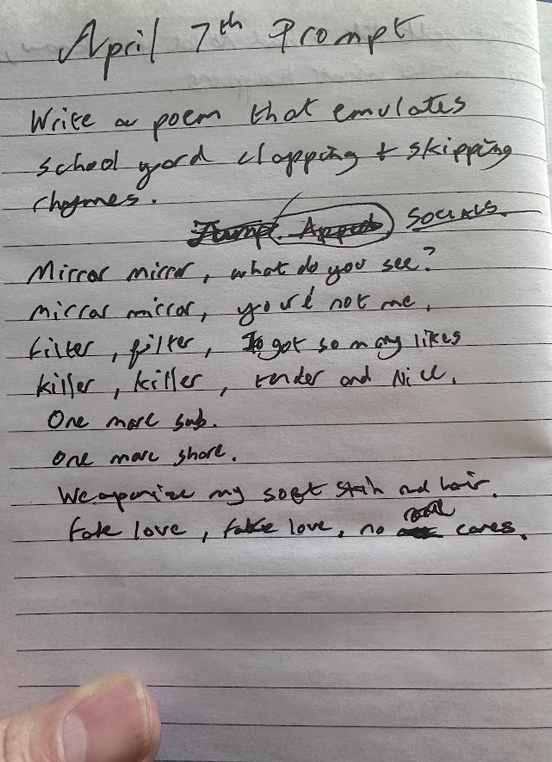 April 7th Prompt
Write a poem that emulates
school yard clapping + skipping
rhymes.
Socials.
Mirror mirror, what do you see?
mirror mirror, you're not me.
Filter, filter, I got so many likes
killer, killer, tender and Nice.
One more sub.
One more share.
Weaponize my soft skin and hair.
Fake love, fake love, no real cares.